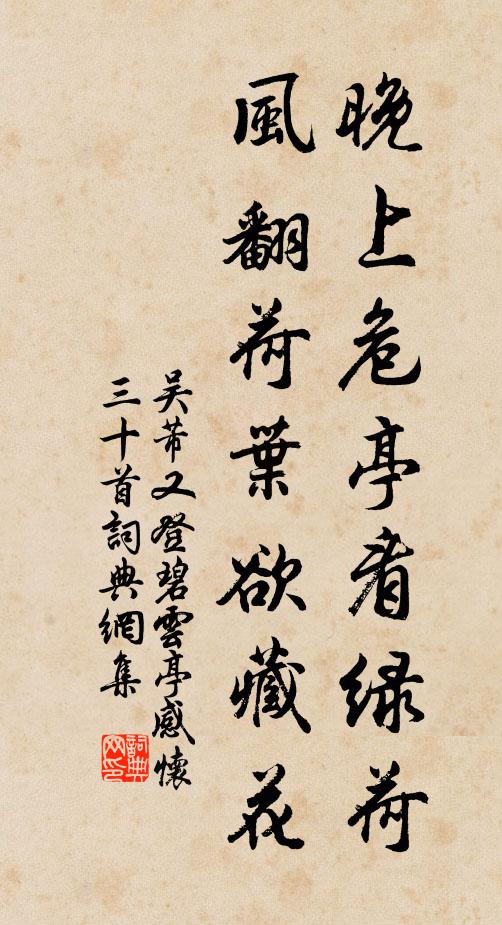 晚上危亭看绿荷
風翻荷葉欲藏花
吴芾又登碧雲亭感懷
三十首詞典網集
詞典网印